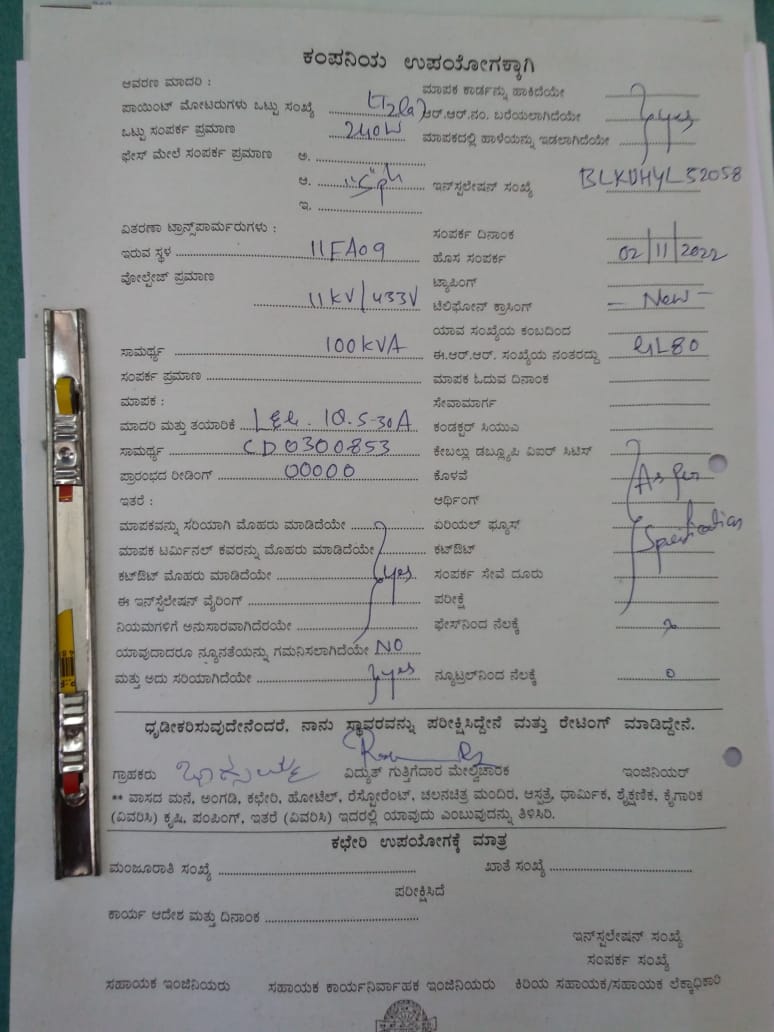 ಕಂಪನಿಯ ಉಪಯೋಗಕ್ಕಾಗಿ
ಆವರಣ ಮಾದರಿ :
ಮಾಪಕ ಕಾರ್ಡನ್ನು ಹಾಕಿದೆಯೇ
ಪಾಯಿಂಟ್ ಮೋಟರುಗಳು ಒಟ್ಟು ಸಂಖ್ಯೆ
ಆರ್.ಆರ್.ನಂ. ಬರೆಯಲಾಗಿದೆಯೇ yes
ಒಟ್ಟು ಸಂಪರ್ಕ ಪ್ರಮಾಣ 240W
ಮಾಪಕದಲ್ಲಿ ಹಾಳೆಯನ್ನು ಇಡಲಾಗಿದೆಯೇ
ಫೇಸ್ ಮೇಲೆ ಸಂಪರ್ಕ ಪ್ರಮಾಣ ಅ.
ಆ.
ಇನ್‌ಸ್ಟಲೇಷನ್ ಸಂಖ್ಯೆ BLKDHYL52058
ಇ.
ವಿತರಣಾ ಟ್ರಾನ್ಸ್‌ಪಾರ್ಮರುಗಳು :
ಸಂಪರ್ಕ ದಿನಾಂಕ
ಇರುವ ಸ್ಥಳ 11FA09
ಹೊಸ ಸಂಪರ್ಕ 02/11/2022
ವೋಲ್ಟೇಜ್ ಪ್ರಮಾಣ
ಟ್ಯಾಪಿಂಗ್
11KV/433V
ಟೆಲಿಫೋನ್ ಕ್ರಾಸಿಂಗ್ - New -
ಯಾವ ಸಂಖ್ಯೆಯ ಕಂಬದಿಂದ
ಸಾಮರ್ಥ್ಯ 100KVA
ಈ.ಆರ್.ಆರ್. ಸಂಖ್ಯೆಯ ನಂತರದ್ದು
ಸಂಪರ್ಕ ಪ್ರಮಾಣ
ಮಾಪಕ ಓದುವ ದಿನಾಂಕ
ಮಾಪಕ :
ಸೇವಾಮಾರ್ಗ
ಮಾದರಿ ಮತ್ತು ತಯಾರಿಕೆ 5-30A
ಕಂಡಕ್ಟರ್ ಸಿಯುಎ
ಸಾಮರ್ಥ್ಯ CD0300853
ಕೇಬಲ್ಲು ಡಬ್ಲ್ಯೂಪಿ ಎಐರ್ ಸಿಟಿಸ್
ಪ್ರಾರಂಭದ ರೀಡಿಂಗ್ 00000
ಕೊಳವೆ As per
ಇತರೆ :
ಆರ್ಥಿಂಗ್
ಮಾಪಕವನ್ನು ಸರಿಯಾಗಿ ಮೊಹರು ಮಾಡಿದೆಯೇ
ಏರಿಯಲ್ ಫ್ಯೂಸ್ Specification
ಮಾಪಕ ಟರ್ಮಿನಲ್ ಕವರನ್ನು ಮೊಹರು ಮಾಡಿದೆಯೇ
ಕಟ್‌ಔಟ್
ಕಟ್‌ಔಟ್ ಮೊಹರು ಮಾಡಿದೆಯೇ yes
ಸಂಪರ್ಕ ಸೇವೆ ದೂರು
ಈ ಇನ್‌ಸ್ಟಲೇಷನ್ ವೈರಿಂಗ್
ಪರೀಕ್ಷೆ
ನಿಯಮಗಳಿಗೆ ಅನುಸಾರವಾಗಿದೆರಯೇ
ಫೇಸ್‌ನಿಂದ ನೆಲಕ್ಕೆ
ಯಾವುದಾದರೂ ನ್ಯೂನತೆಯನ್ನು ಗಮನಿಸಲಾಗಿದೆಯೇ NO
ಮತ್ತು ಅದು ಸರಿಯಾಗಿದೆಯೇ yes
ನ್ಯೂಟ್ರಲ್‌ನಿಂದ ನೆಲಕ್ಕೆ 0
ಧೃಡೀಕರಿಸುವುದೇನೆಂದರೆ, ನಾನು ಸ್ಥಾವರವನ್ನು ಪರೀಕ್ಷಿಸಿದ್ದೇನೆ ಮತ್ತು ರೇಟಿಂಗ್ ಮಾಡಿದ್ದೇನೆ.
ಗ್ರಾಹಕರು ವಿದ್ಯುತ್ ಗುತ್ತಿಗೆದಾರ ಮೇಲ್ವಿಚಾರಕ ಇಂಜಿನಿಯರ್
** ವಾಸದ ಮನೆ, ಅಂಗಡಿ, ಕಛೇರಿ, ಹೋಟೆಲ್, ರೆಸ್ಟೋರೆಂಟ್, ಚಲನಚಿತ್ರ ಮಂದಿರ, ಆಸ್ಪತ್ರೆ, ಧಾರ್ಮಿಕ, ಶೈಕ್ಷಣಿಕ, ಕೈಗಾರಿಕ
(ವಿವರಿಸಿ) ಕೃಷಿ, ಪಂಪಿಂಗ್, ಇತರೆ (ವಿವರಿಸಿ) ಇದರಲ್ಲಿ ಯಾವುದು ಎಂಬುವುದನ್ನು ತಿಳಿಸಿರಿ.
ಕಛೇರಿ ಉಪಯೋಗಕ್ಕೆ ಮಾತ್ರ
ಮಂಜೂರಾತಿ ಸಂಖ್ಯೆ ಖಾತೆ ಸಂಖ್ಯೆ
ಪರೀಕ್ಷಿಸಿದೆ
ಕಾರ್ಯ ಆದೇಶ ಮತ್ತು ದಿನಾಂಕ
ಇನ್‌ಸ್ಟಲೇಷನ್ ಸಂಖ್ಯೆ
ಸಂಪರ್ಕ ಸಂಖ್ಯೆ
ಸಹಾಯಕ ಇಂಜಿನಿಯರು ಸಹಾಯಕ ಕಾರ್ಯನಿರ್ವಾಹಕ ಇಂಜಿನಿಯರು ಕಿರಿಯ ಸಹಾಯಕ/ಸಹಾಯಕ ಲೆಕ್ಕಾಧಿಕಾರಿ